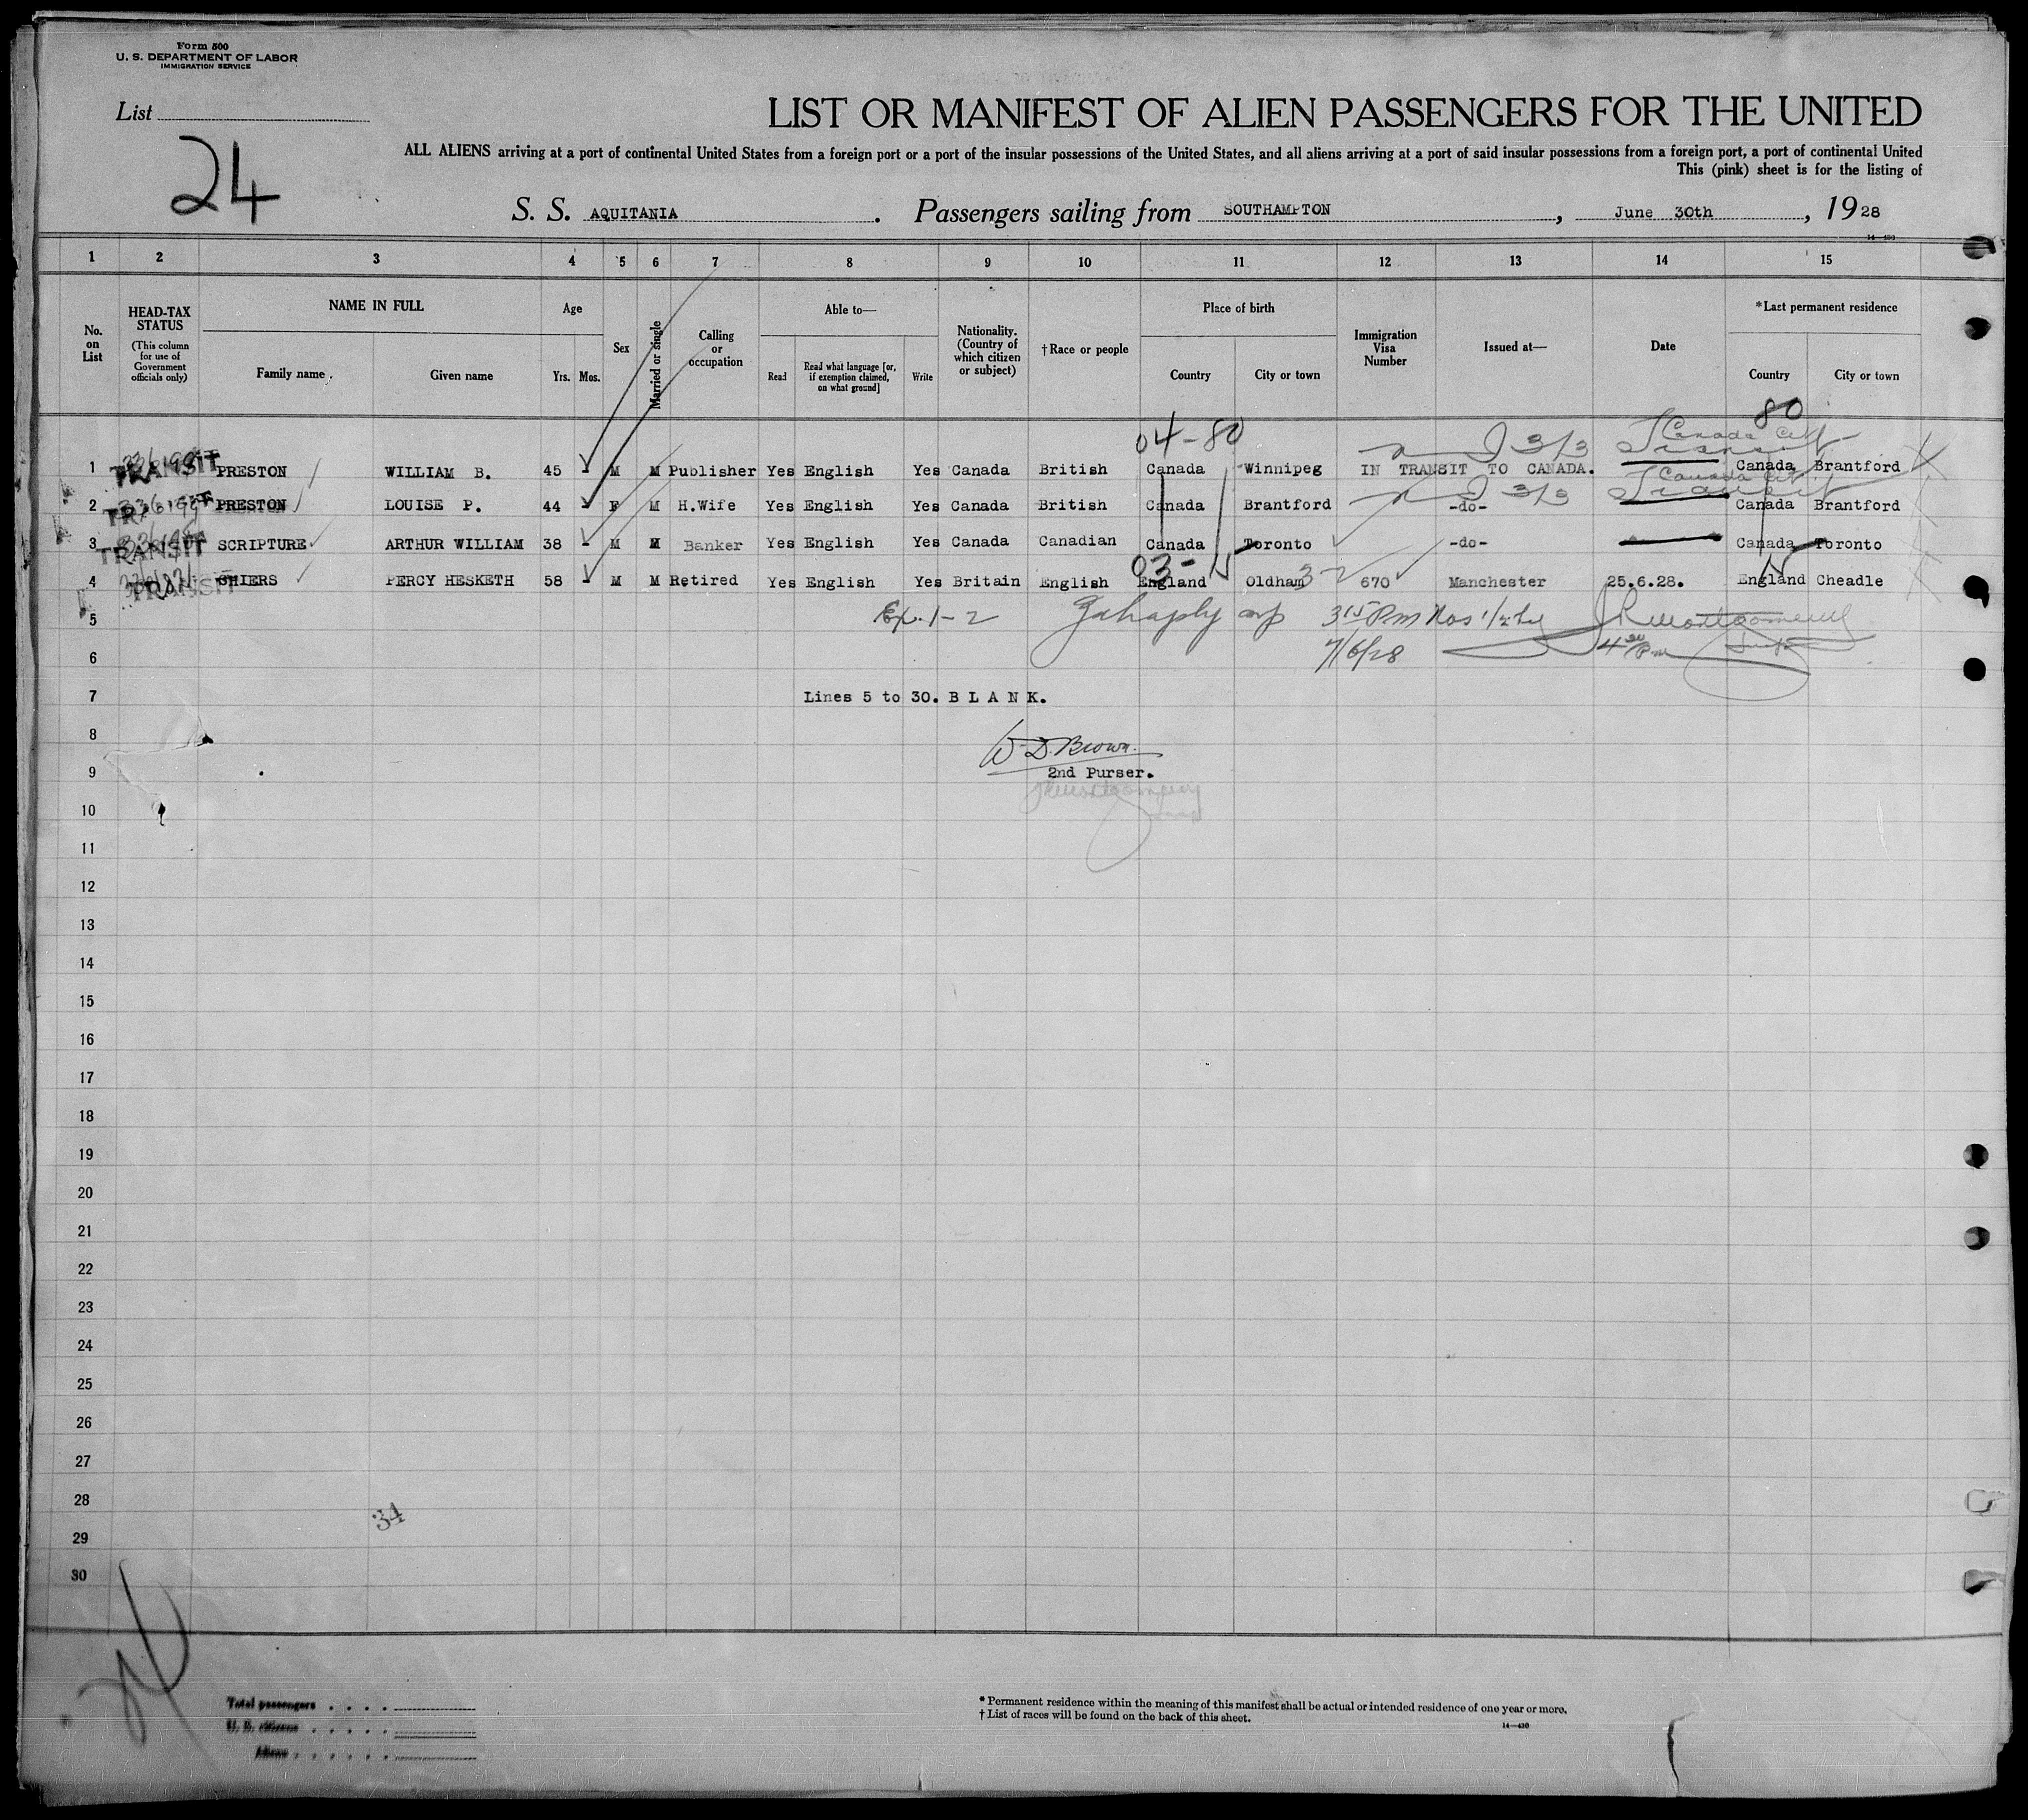 Form 500
U. S. DEPARTMENT OF LABOR
IMMIGRATION SERVICE
List
24
LIST OR MANIFEST OF ALIEN PASSENGERS FOR THE UNITED
ALL ALIENS arriving at a port of continental United States from a foreign port or a port of the insular possessions of the United States, and all aliens arriving at a port of said insular possessions from a foreign port, a port of continental United
This (pink) sheet is for the listing of
S. S. AQUITANIA. Passengers sailing from SOUTHAMPTON, June 30th, 1928
14-430
1 2 3 4 5 6 7 8 9 10 11 12 13 14 15
No. on List
HEAD-TAX STATUS (This column for use of Government officials only)
NAME IN FULL
Family name
Given name
Age
Yrs. Mos.
Sex
Married or single
Calling or occupation
Able to—
Read
Read what language [or, if exemption claimed, on what ground]
Write
Nationality. (Country of which citizen or subject)
† Race or people
Place of birth
Country
City or town
Immigration Visa Number
Issued at—
Date
*Last permanent residence
Country
City or town
80
04-80
3/3 Canada
Transit
1 TRANSIT PRESTON WILLIAM B. 45 - M M Publisher Yes English Yes Canada British Canada Winnipeg IN TRANSIT TO CANADA. Canada Brantford
3/3 Canada
Transit
2 TRANSIT PRESTON LOUISE P. 44 - F M H.Wife Yes English Yes Canada British Canada Brantford -do- Canada Brantford
3 TRANSIT SCRIPTURE ARTHUR WILLIAM 38 - M M Banker Yes English Yes Canada Canadian Canada Toronto -do- Canada Toronto
03-
4 TRANSIT SHIERS PERCY HESKETH 58 - M M Retired Yes English Yes Britain English England Oldham 670 Manchester 25.6.28. England Cheadle
5 Ex. 1-2 315 Pm Nos 1/2 JRMontgomery
6 7/6/28 4 Pm
7 Lines 5 to 30. B L A N K.
8 W D Brown.
9 2nd Purser.
JRMontgomery
10
11
12
13
14
15
16
17
18
19
20
21
22
23
24
25
26
27
28
34
29
30
24
Total passengers
U. S. citizens
Aliens
* Permanent residence within the meaning of this manifest shall be actual or intended residence of one year or more.
† List of races will be found on the back of this sheet.
14-430